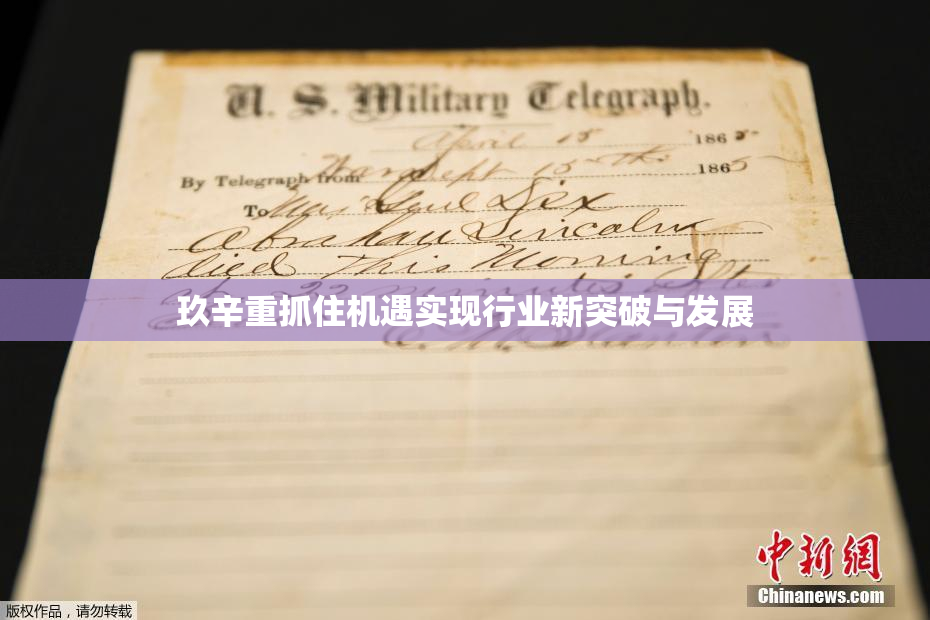 U. S. Military Telegraph.
April 15 1865
By Telegraph from War Dept 15th 1865
To Maj Genl Dix
Abraham Lincoln
died This Morning
at 22 minutes after
玖辛重抓住机遇实现行业新突破与发展
E. M. Stanton
中新网
Chinanews.com
版权作品，请勿转载